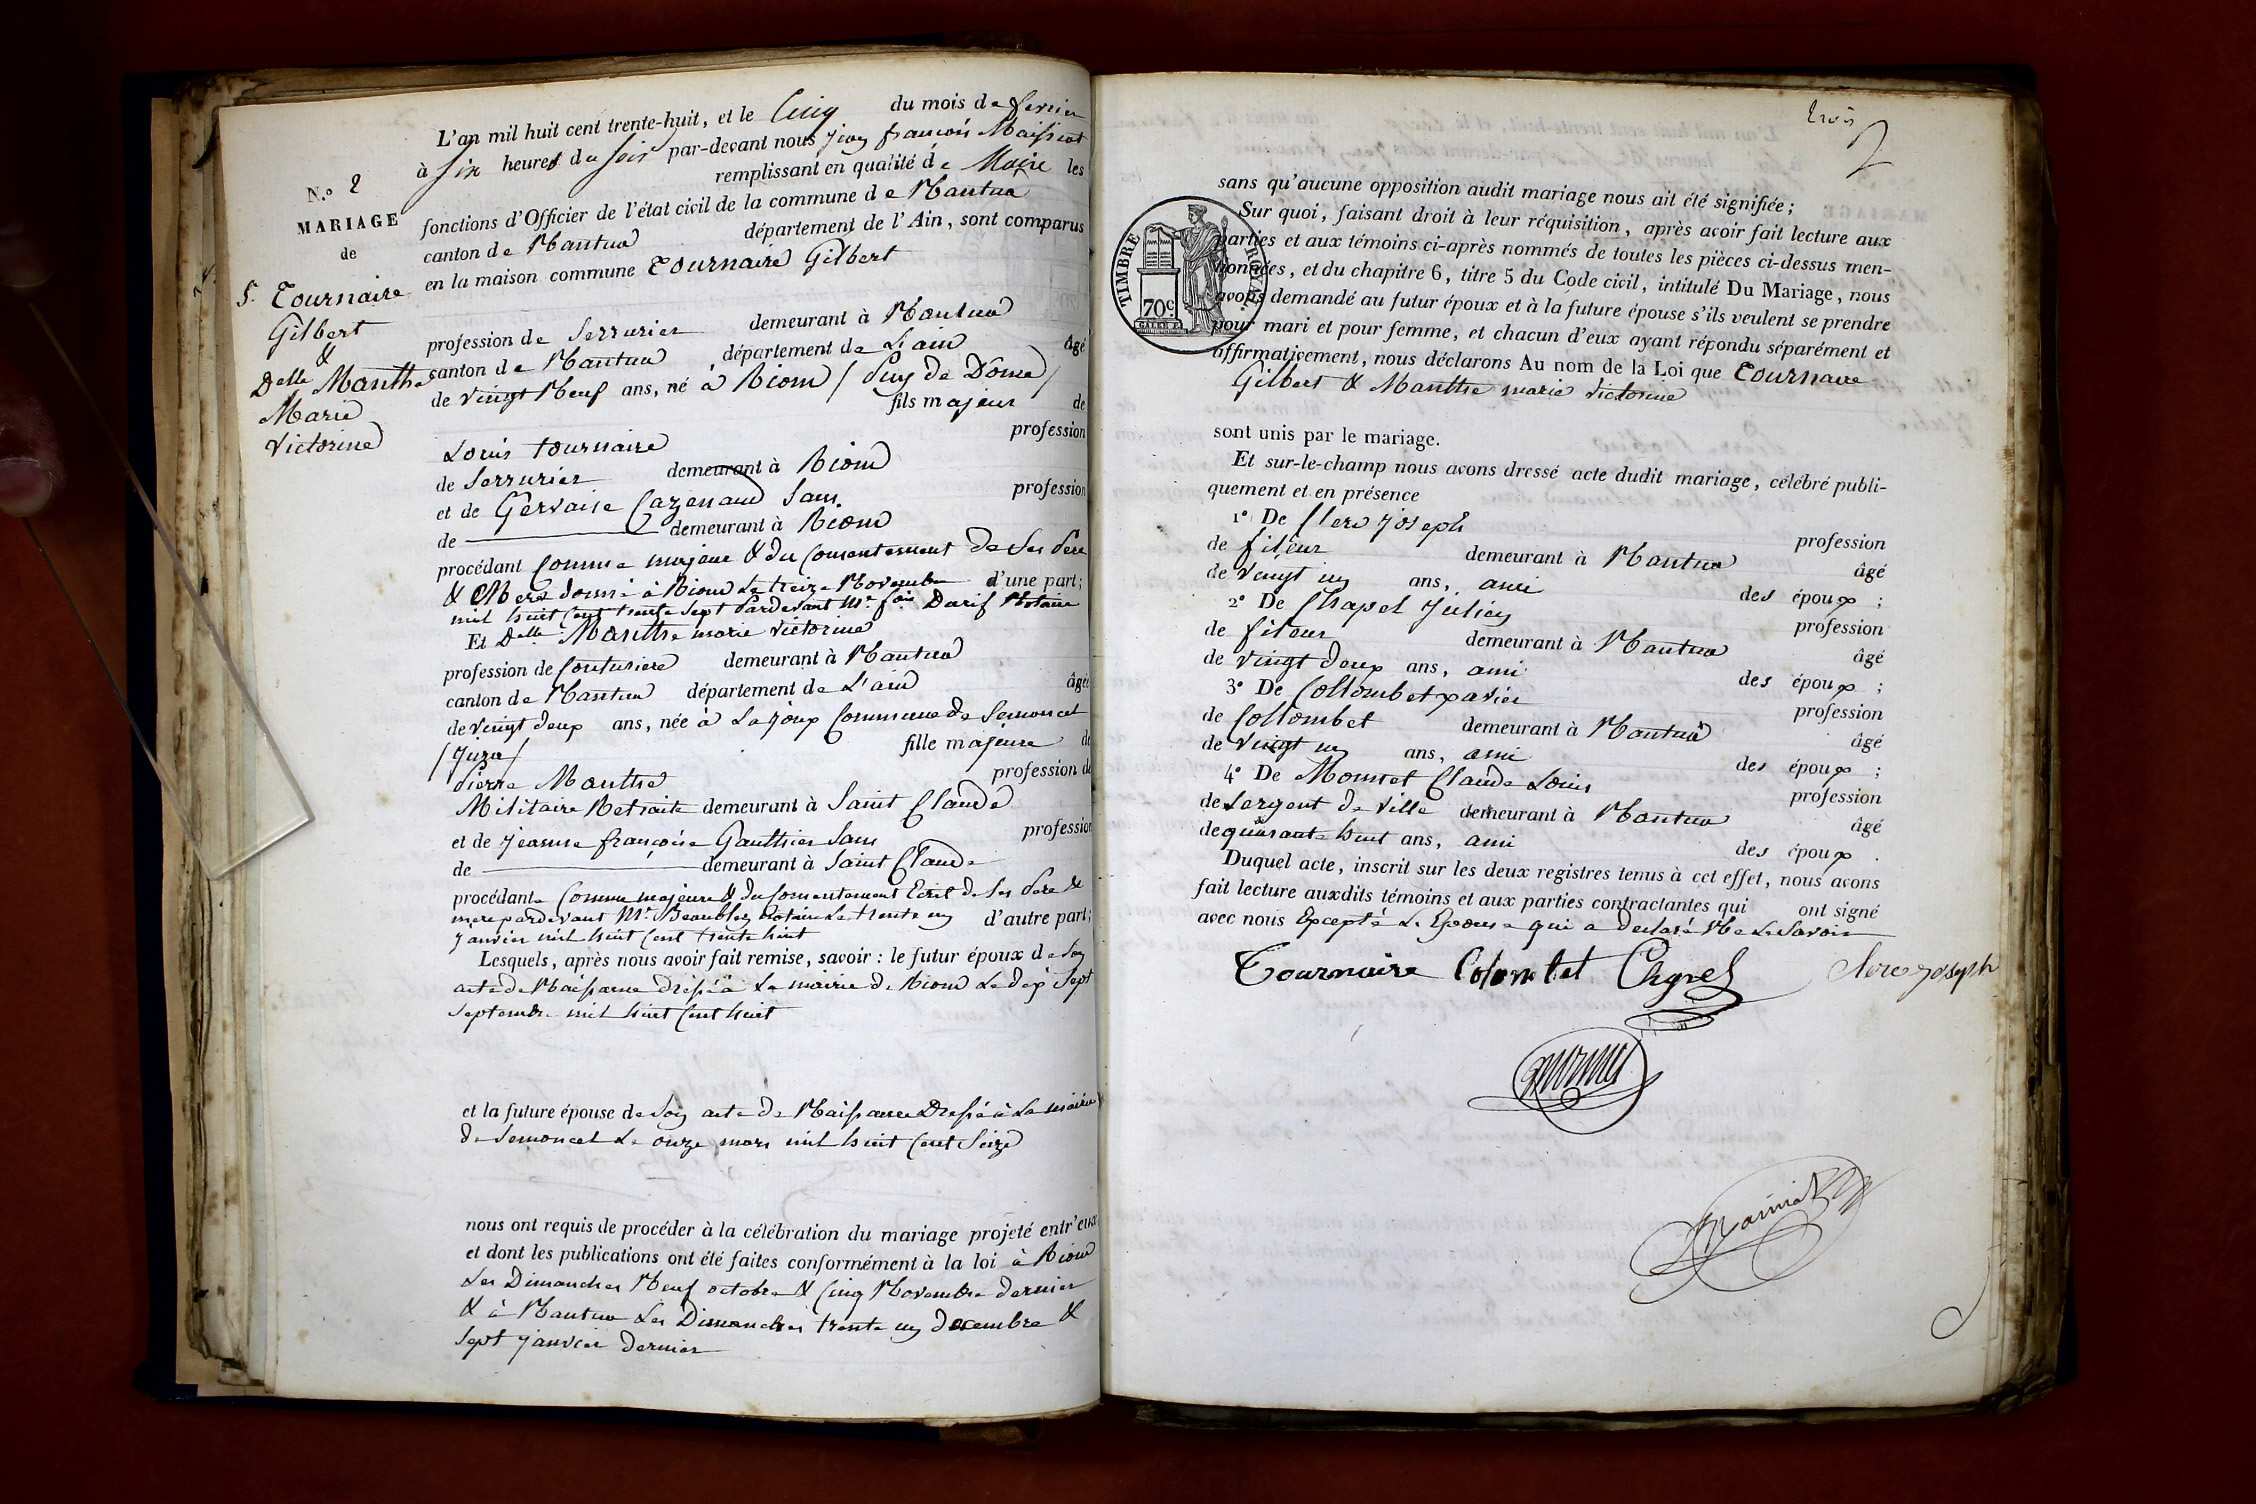 L'an mil huit cent trente-huit, et le Cinq du mois de fevrier
à Six heures du Soir par-devant nous jean françois Maissiat
remplissant en qualité de Maire les
fonctions d'Officier de l'état civil de la commune de Nantua
canton de Nantua département de l'Ain, sont comparus
en la maison commune Tournaire Gilbert
profession de Serrurier demeurant à Nantua
canton de Nantua département de L'ain âgé
de vingt Neuf ans, né à Riom (Puy de Dome)
fils majeur de
Louis tournaire profession
de Serrurier demeurant à Riom
et de Gervaise Cazenaud Sans profession
de demeurant à Riom
procédant Comme majeur & du Consentement de Ses Pere
& Mere donné à Riom Le treize Novembre d'une part;
mil huit Cent trente Sept Pardevant Mr. fois Darif Notaire
Et Delle Manthe marie victorine
profession de Couturiere demeurant à Nantua
canton de Nantua département de L'ain âgée
de vingt deux ans, née à Lajoux Commune de Semoncel
(Jura) fille majeure de
Pierre Manthe profession de
Militaire Retraite demeurant à Saint Claude
et de jeanne françoise Gauthier Sans profession
de demeurant à Saint Claude
procédante Comme majeure & du Consentement Ecrit de Ses Pere &
mere pardevant Mr. notaire Le trente un d'autre part;
janvier mil huit Cent trente huit
Lesquels, après nous avoir fait remise, savoir : le futur époux de Son
acte de Naissance dressé à La mairie de Riom Le dix Sept
Septembre mil huit Cent huit
et la future épouse de Son acte de Naissance Dressé à La mairie
de Semoncel Le onze mars mil huit Cent Seize
nous ont requis de procéder à la célébration du mariage projeté entr'eux
et dont les publications ont été faites conformément à la loi à Riom
Les Dimanches Neuf octobre & Cinq Novembre dernier
& à Nantua Les Dimanches trente un decembre &
Sept janvier dernier
N.º 2
MARIAGE
de
5. Tournaire
Gilbert
&
Delle Manthe
Marie
Victorine
trois
2
TIMBRE ROYAL
70c
sans qu'aucune opposition audit mariage nous ait été signifiée;
Sur quoi, faisant droit à leur réquisition, après avoir fait lecture aux
parties et aux témoins ci-après nommés de toutes les pièces ci-dessus men-
tionnées, et du chapitre 6, titre 5 du Code civil, intitulé Du Mariage, nous
avons demandé au futur époux et à la future épouse s'ils veulent se prendre
pour mari et pour femme, et chacun d'eux ayant répondu séparément et
affirmativement, nous déclarons Au nom de la Loi que Tournaire
Gilbert & Manthe marie victorine
sont unis par le mariage.
Et sur-le-champ nous avons dressé acte dudit mariage, célébré publi-
quement et en présence
1º De Clerc joseph profession
de fileur demeurant à Nantua âgé
de vingt un ans, ami des époux ;
2º De Chapel Julien profession
de fileur demeurant à Nantua âgé
de vingt deux ans, ami des époux ;
3º De Collombet xavier profession
de Collombet demeurant à Nantua âgé
de vingt un ans, ami des époux ;
4º De Mornet Claude Louis profession
de Sergent de ville demeurant à Nantua âgé
de quarante huit ans, ami des époux .
Duquel acte, inscrit sur les deux registres tenus à cet effet, nous avons
fait lecture auxdits témoins et aux parties contractantes qui ont signé
avec nous Excepté L'Epouse qui a declaré Ne Le Savoir
Tournaire Colombet Clerc joseph